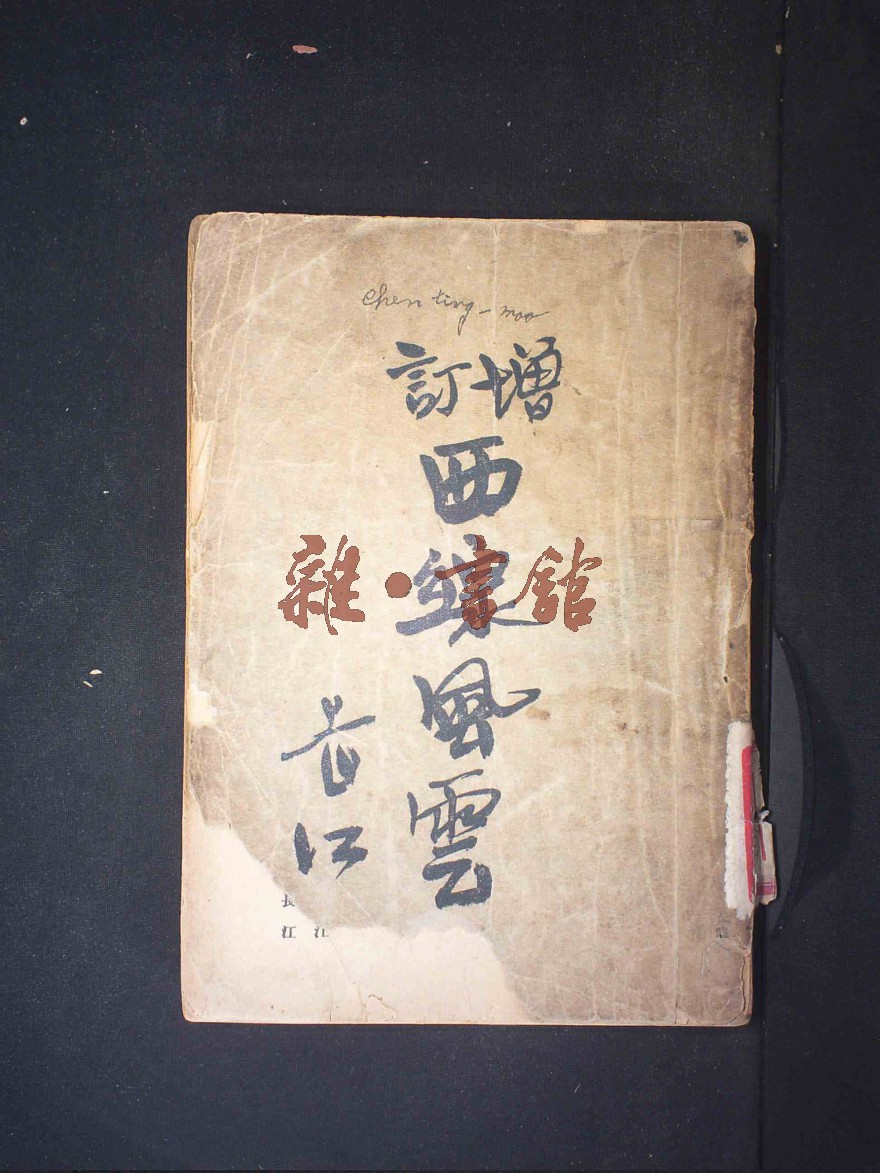 Chen ting-moo
增訂
西線風雲
長江
雜·書館
長江